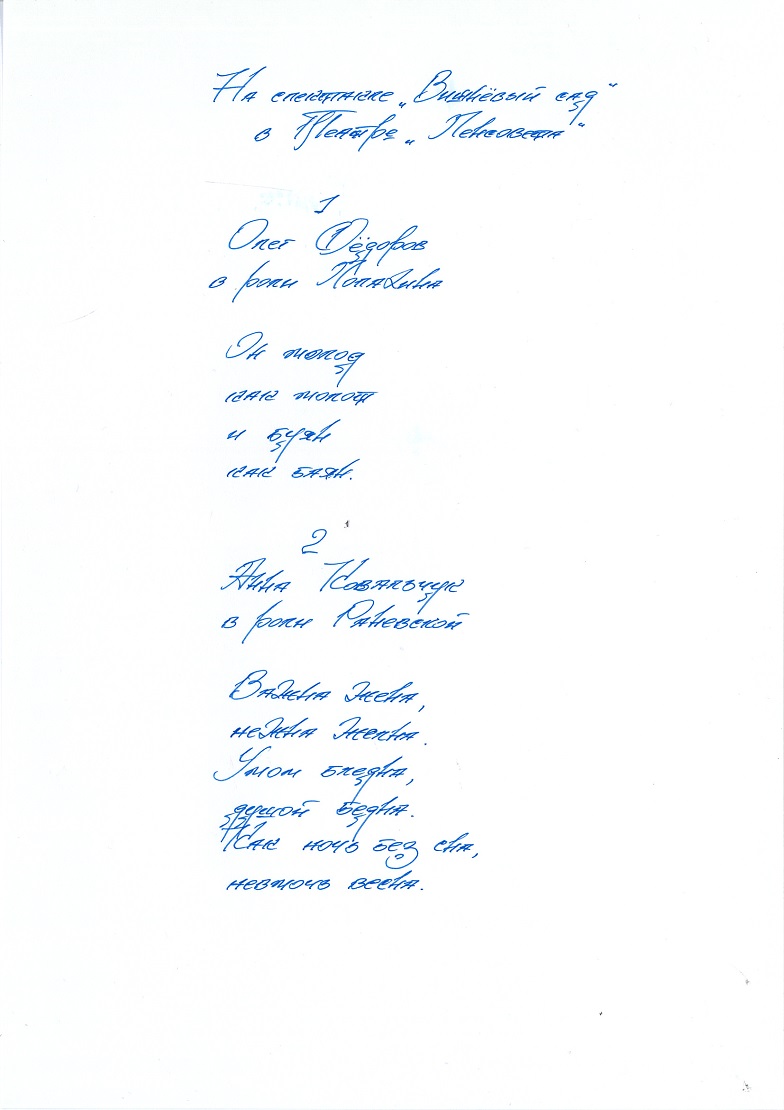 На спектакле „Вишнёвый сад"
в Театре „Ленсовета"
1
Олег Фёдоров
в роли Лопахина
Он молод
как молот
и буян
как баян.
2
Анна Ковальчук
в роли Раневской
Важна жена,
нежна жена.
Умом бледна,
душой бедна.
Как ночь без сна,
невмочь весна.